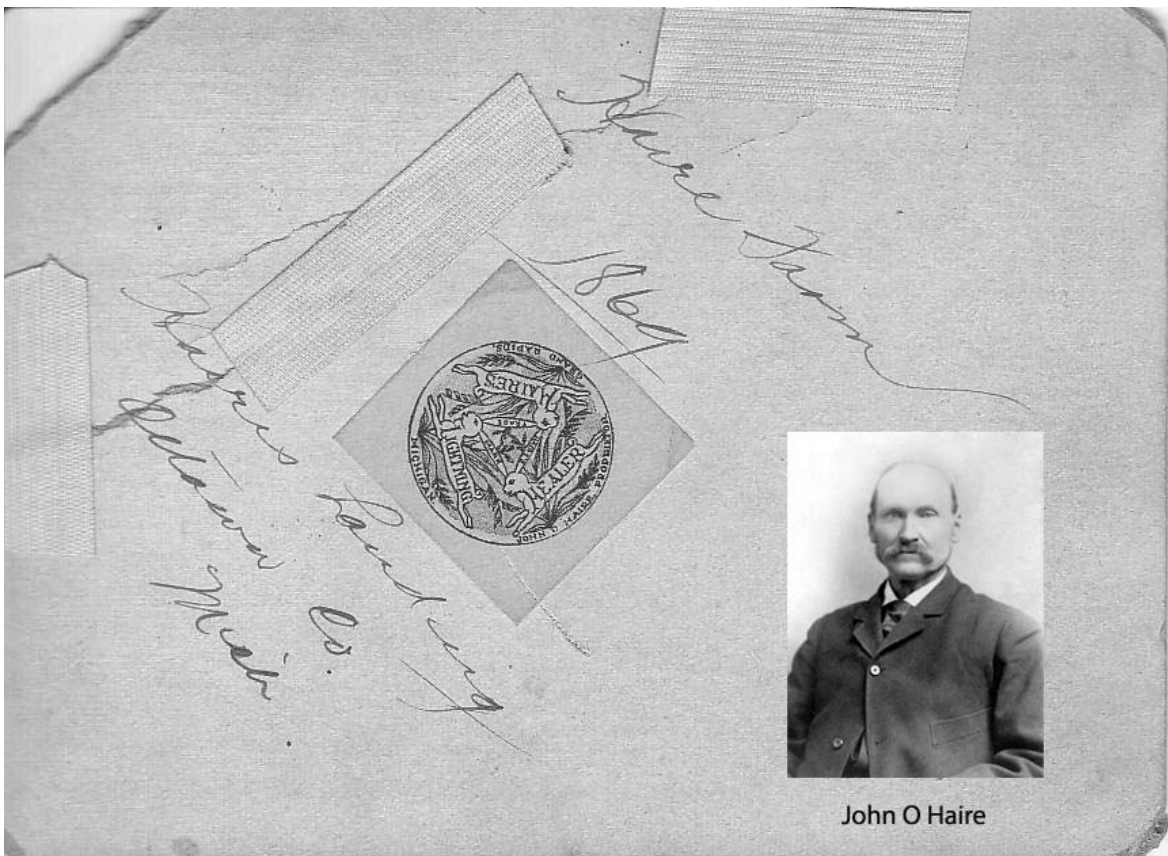 Haire Farm
1869
Haires Landing
Ottawa Co.
Mich
HAIRE'S
LIGHTNING
HEALER
TRADE
JOHN O HAIRE, PROPRIETOR
GRAND RAPIDS,
MICHIGAN
John O Haire